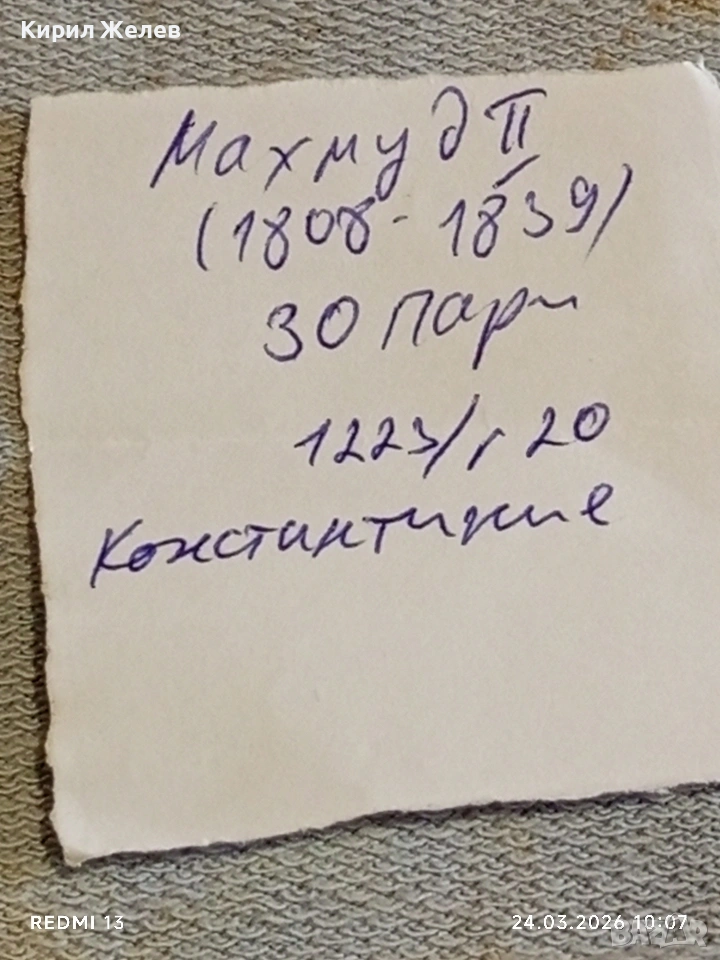 Кирил Желев
Махмуд II
(1808-1839)
30 пари
1223/г 20
Константиние
REDMI 13
24.03.2026 10:07
BAZAR